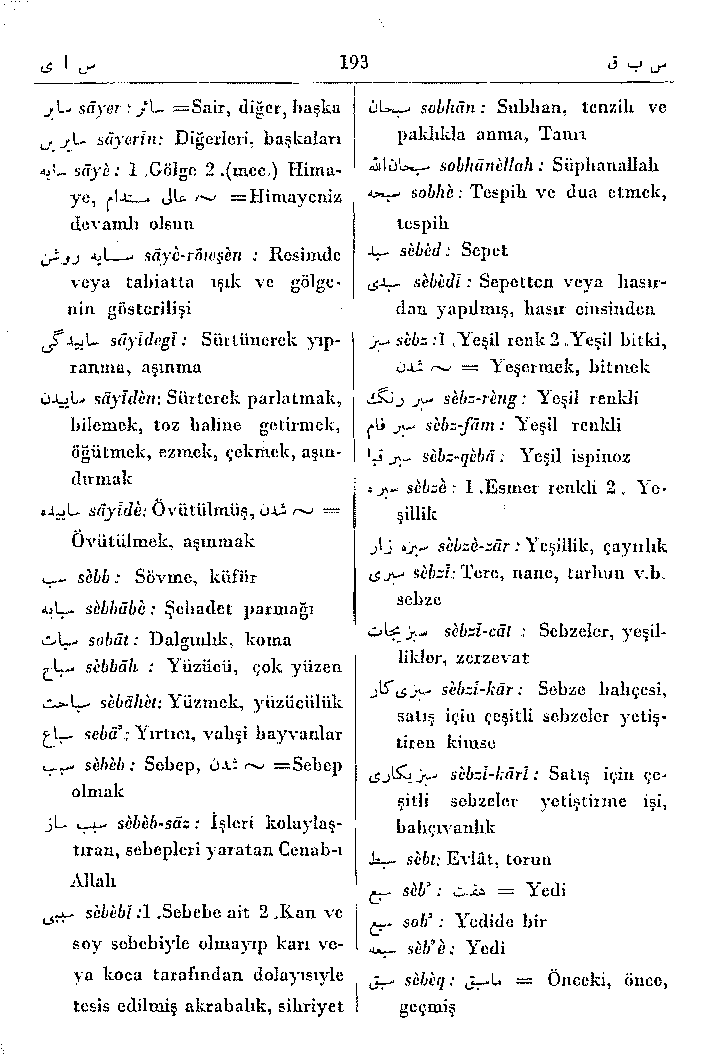 س ا ی
193
س ب ق
ساير : سائر sāyer : =Sair, diğer, başka
سايرين sāyerin: Diğerleri, başkaları
سايه sāyè : 1 .Gölge 2 .(mec.) Hima-
ye, سايه عالى مستدام =Himayeniz
devamlı olsun
سايه روشن sāyè-rōwşèn : Resimde
veya tabiatta ışık ve gölge-
nin gösterilişi
ساييدگى sāyīdegī : Sürtünerek yıp-
ranma, aşınma
ساييدن sāyīdèn: Sürterek parlatmak,
bilemek, toz haline getirmek,
öğütmek, ezmek, çekmek, aşın-
dırmak
ساييده sāyīdè: Övütülmüş, شدن ~ =
Övütülmek, aşınmak
سب sèbb : Sövme, küfür
سبابه sèbbābè : Şehadet parmağı
سبات sobāt : Dalgınlık, koma
سباح sèbbāh : Yüzücü, çok yüzen
سباحت sèbāhèt: Yüzmek, yüzücülük
سباع sebāʾ: Yırtıcı, vahşi hayvanlar
سبب sèbèb : Sebep, شدن ~ =Sebep
olmak
سبب ساز sèbèb-sāz : İşleri kolaylaş-
tıran, sebepleri yaratan Cenab-ı
Allah
سببى sèbèbī :1 .Sebebe ait 2 .Kan ve
soy sebebiyle olmayıp karı ve-
ya koca tarafından dolayısıyle
tesis edilmiş akrabalık, sihriyet
سبحان sobhān : Subhan, tenzih ve
paklıkla anma, Tanrı
سبحان الله sobhānèllah : Süphanallah
سبحه sobhè : Tespih ve dua etmek,
tespih
سبد sèbèd : Sepet
سبدى sèbèdī : Sepetten veya hasır-
dan yapılmış, hasır cinsinden
سبز sèbz :1 .Yeşil renk 2 .Yeşil bitki,
شدن ~ = Yeşermek, bitmek
سبز رنگ sèbz-rèng : Yeşil renkli
سبز فام sèbz-fām : Yeşil renkli
سبز قبا sèbz-qèbā : Yeşil ispinoz
سبزه sèbzè : 1 .Esmer renkli 2 . Ye-
şillik
سبزه زار sèbzè-zār : Yeşillik, çayırlık
سبزى sèbzī: Tere, nane, tarhun v.b.
sebze
سبزيجات sèbzī-cāt : Sebzeler, yeşil-
likler, zerzevat
سبزى كار sèbzī-kār : Sebze bahçesi,
satış için çeşitli sebzeler yetiş-
tiren kimse
سبزيكارى sèbzī-kārī : Satış için çe-
şitli sebzeler yetiştirme işi,
bahçıvanlık
سبط sèbt: Evlât, torun
سبع sèbʾ : هفت = Yedi
سبع sobʾ : Yedide bir
سبعه sèbʾè : Yedi
سبق sèbèq : ماسبق = Önceki, önce,
geçmiş